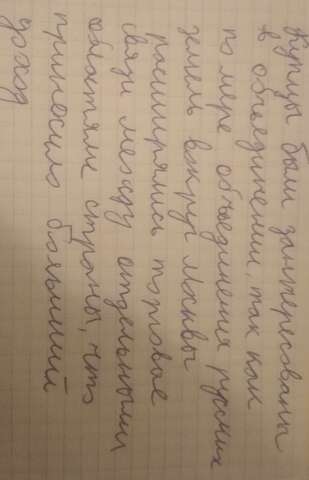 Купцы были заинтересованы
в объединении, так как
по мере объединения русских
земель вокруг Москвы
расширялись торговые
связи между отдельными
областями страны, что
приносило больший
доход